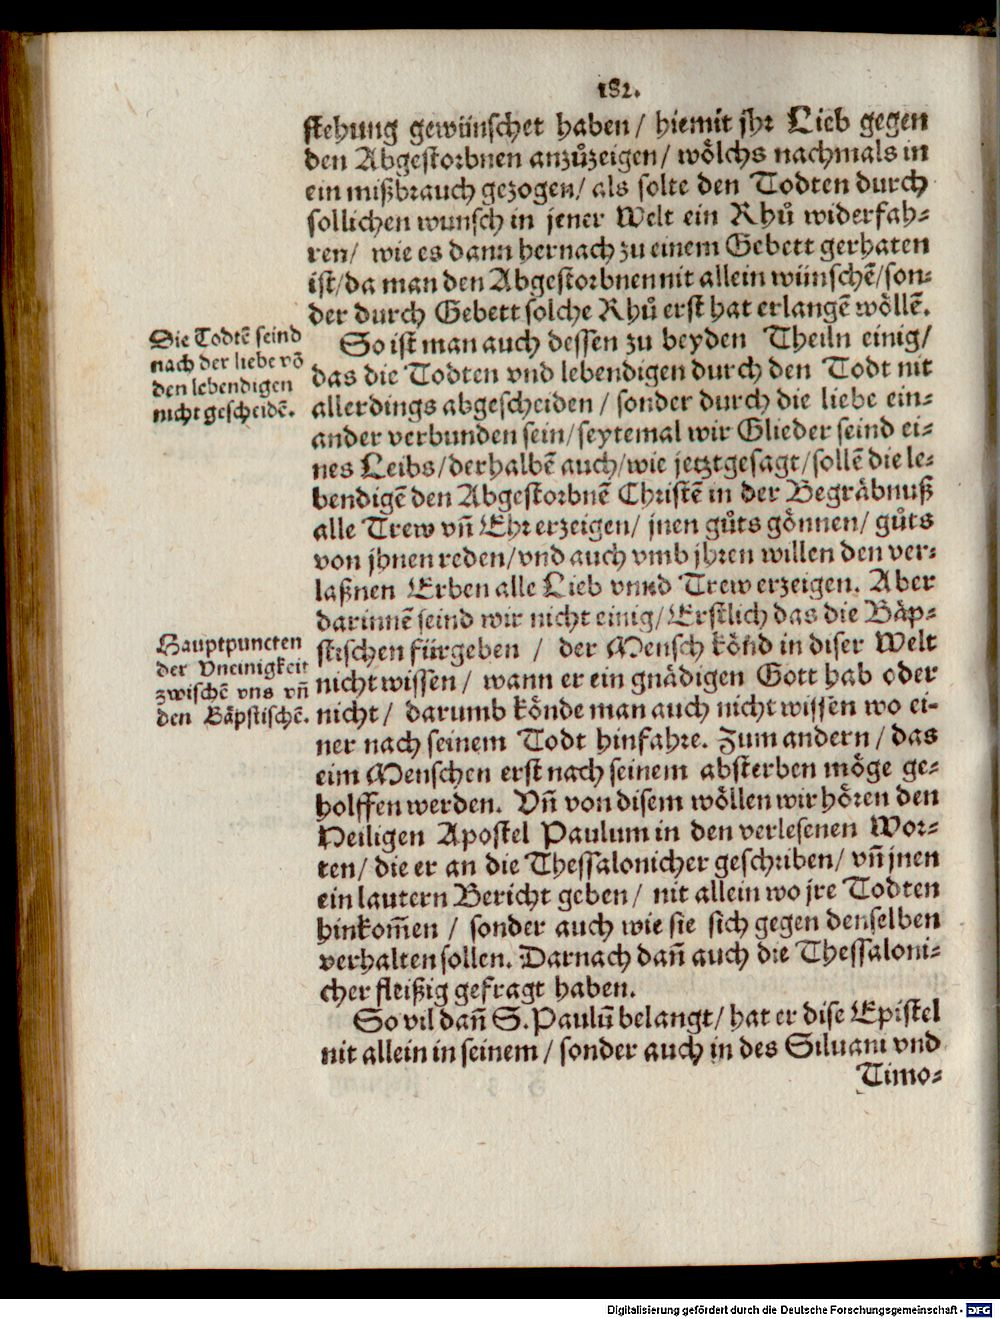 182.
stehung gewünschet haben / hiemit jhr Lieb gegen
den Abgestorbnen anzůzeigen / wölchs nachmals in
ein mißbrauch gezogen / als solte den Todten durch
sollichen wunsch in jener Welt ein Rhů widerfah-
ren / wie es dann hernach zu einem Gebett gerhaten
ist / da man den Abgestorbnen nit allein wünschẽ / son-
der durch Gebett solche Rhů erst hat erlangẽ wöllẽ.
Die Todtẽ seind
nach der liebe võ
den lebendigen
nicht gescheidẽ.
So ist man auch dessen zu beyden Theiln einig /
das die Todten vnd lebendigen durch den Todt nit
allerdings abgescheiden / sonder durch die liebe ein-
ander verbunden sein / seytemal wir Glieder seind ei-
nes Leibs / derhalbẽ auch / wie jetztgesagt / sollẽ die le-
bendigẽ den Abgestorbnẽ Christẽ in der Begräbnuß
alle Trew vñ Ehr erzeigen / jnen gůts gönnen / gůts
von jhnen reden / vnd auch vmb jhren willen den ver-
laßnen Erben alle Lieb vnnd Trew erzeigen. Aber
darinnẽ seind wir nicht einig / Erstlich das die Bäp-
Hauptpuncten
der Vneinigkeit
zwischẽ vns vñ
den Bäpstischẽ.
stischen fürgeben / der Mensch könd in diser Welt
nicht wissen / wann er ein gnädigen Gott hab oder
nicht / darumb könde man auch nicht wissen wo ei-
ner nach seinem Todt hinfahre. Zum andern / das
eim Menschen erst nach seinem absterben möge ge-
holffen werden. Vñ von disem wöllen wir hören den
Heiligen Apostel Paulum in den verlesenen Wor-
ten / die er an die Thessalonicher geschriben / vñ jnen
ein lautern Bericht geben / nit allein wo jre Todten
hinkom̃en / sonder auch wie sie sich gegen denselben
verhalten sollen. Darnach dañ auch die Thessaloni-
cher fleißig gefragt haben.
So vil dañ S. Paulũ belangt / hat er dise Epistel
nit allein in seinem / sonder auch in des Siluani vnd
Timo-
Digitalisierung gefördert durch die Deutsche Forschungsgemeinschaft - DFG